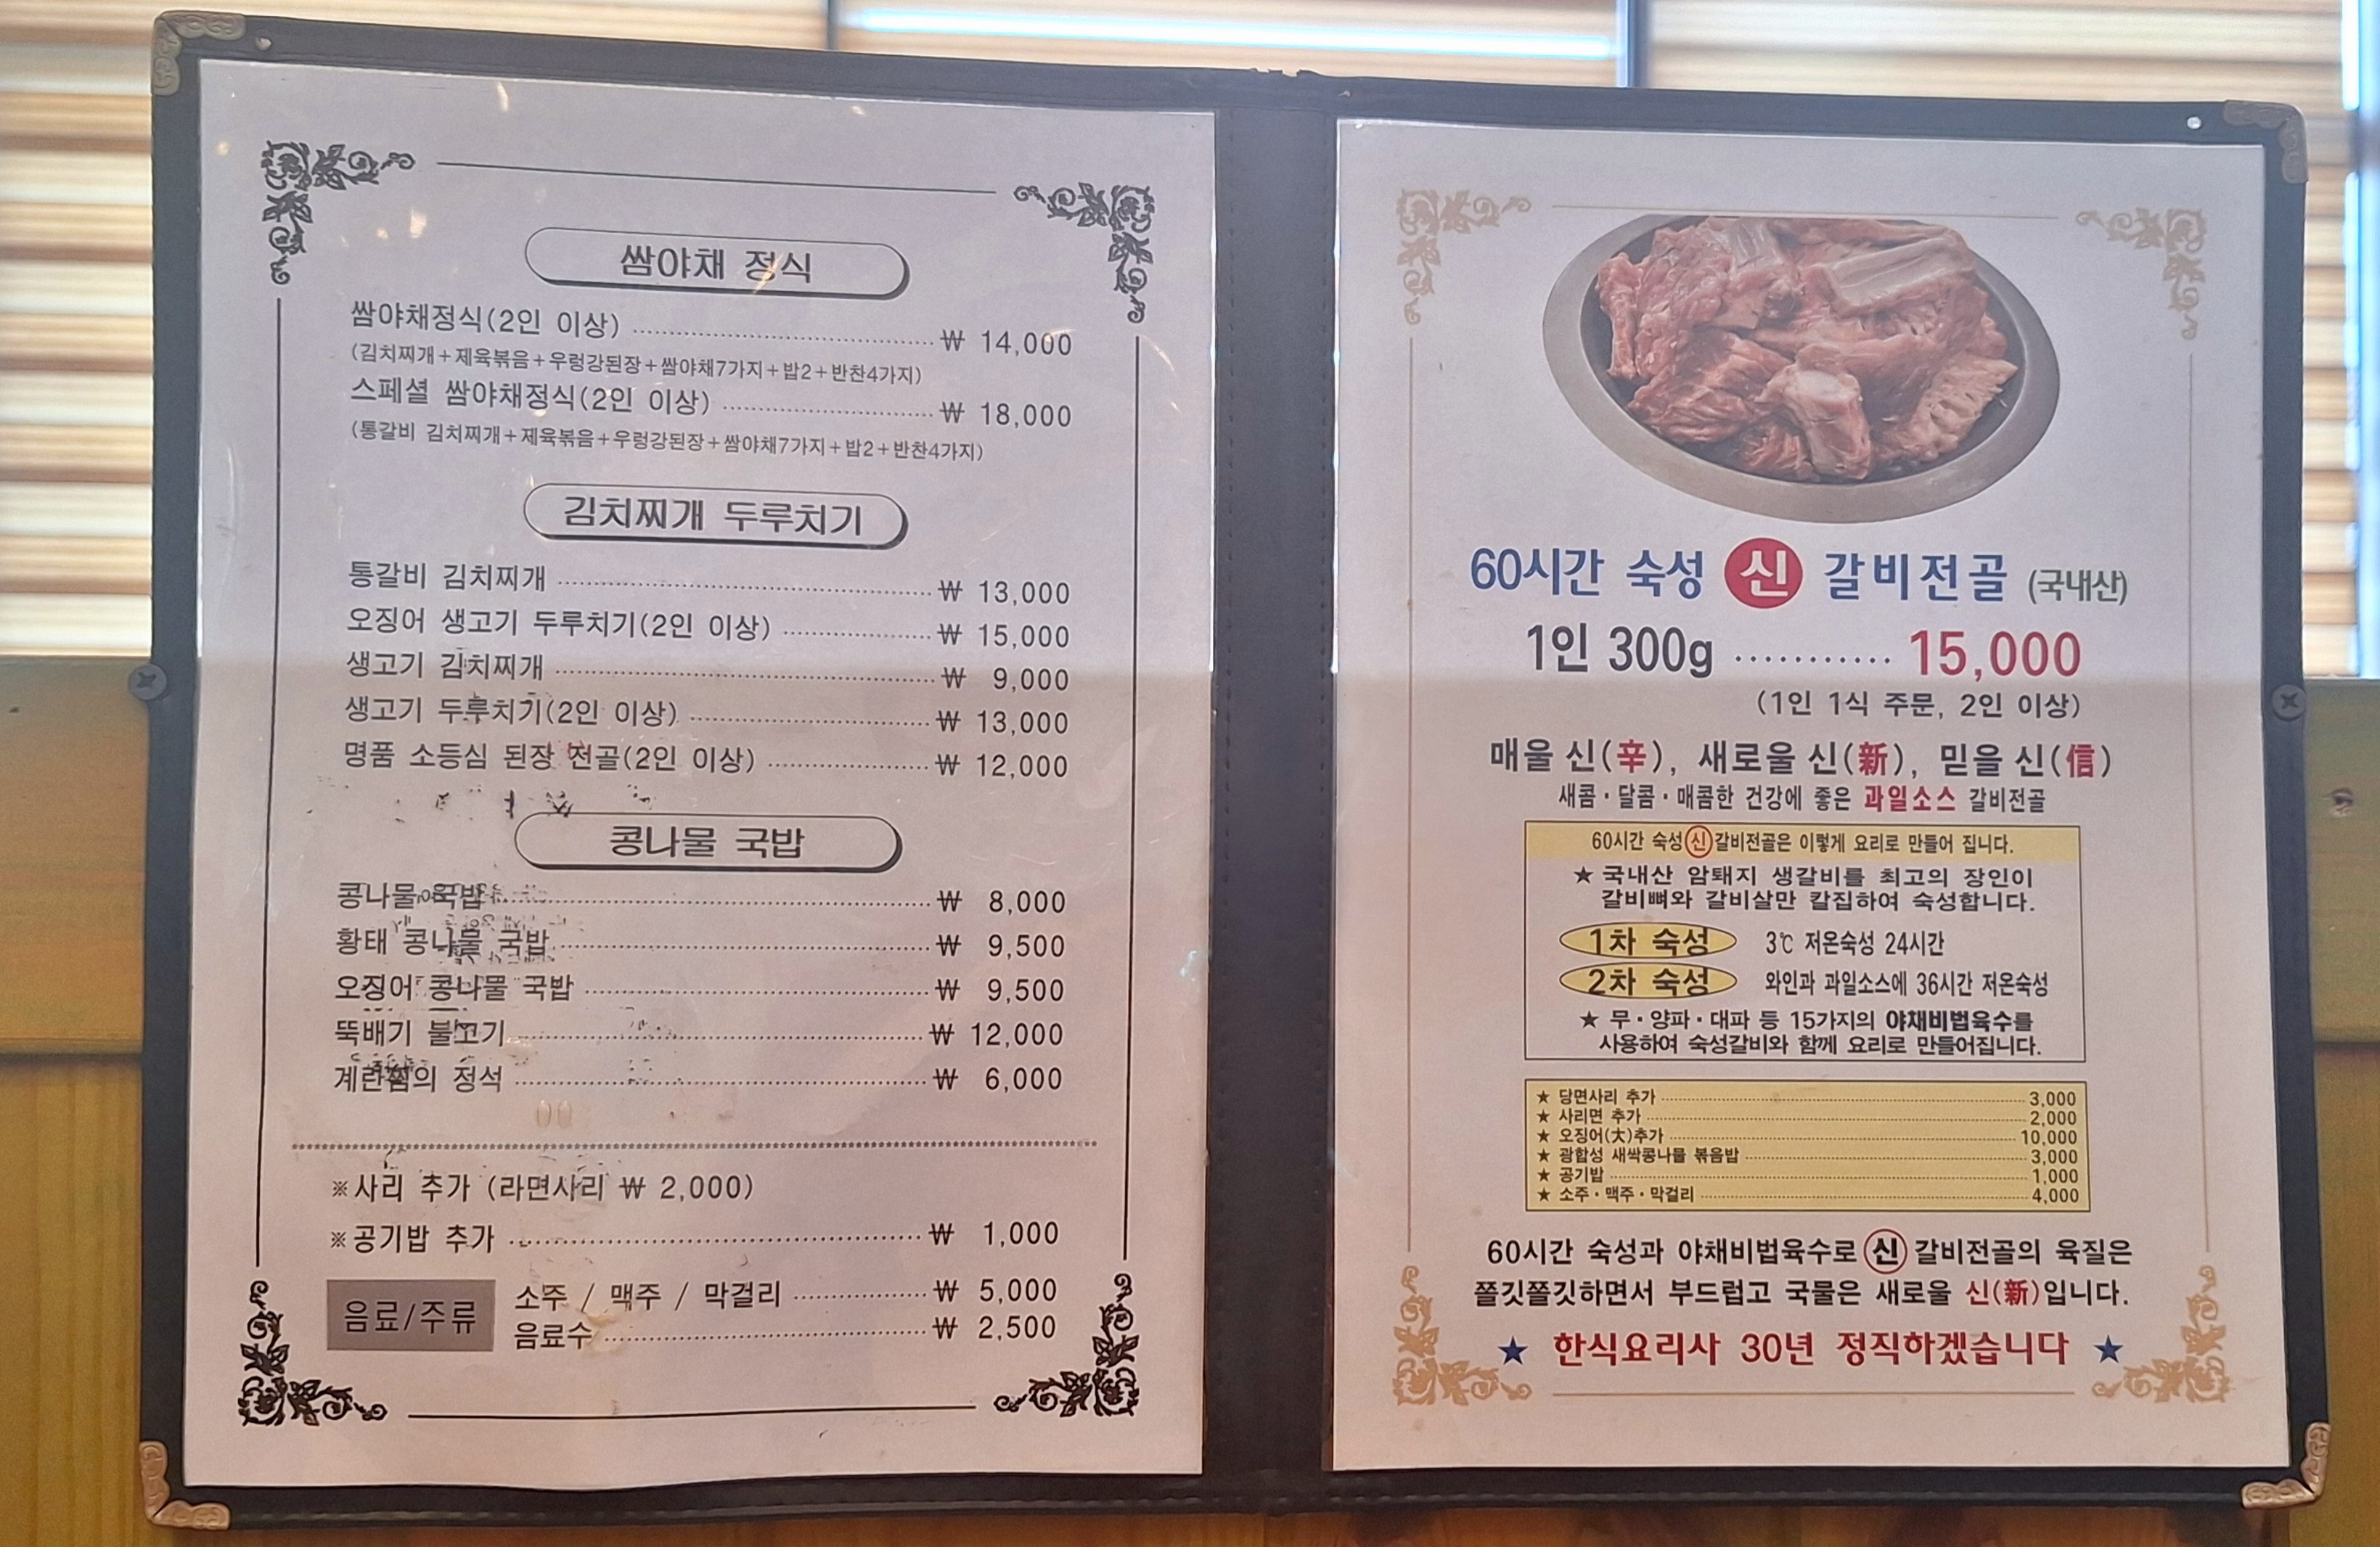 쌈야채 정식
쌈야채정식(2인 이상) ₩ 14,000
(김치찌개+제육볶음+우렁강된장+쌈야채7가지+밥2+반찬4가지)
스페셜 쌈야채정식(2인 이상) ₩ 18,000
(통갈비 김치찌개+제육볶음+우렁강된장+쌈야채7가지+밥2+반찬4가지)
김치찌개 두루치기
통갈비 김치찌개 ₩ 13,000
오징어 생고기 두루치기(2인 이상) ₩ 15,000
생고기 김치찌개 ₩ 9,000
생고기 두루치기(2인 이상) ₩ 13,000
명품 소등심 된장 전골(2인 이상) ₩ 12,000
콩나물 국밥
콩나물 국밥 ₩ 8,000
황태 콩나물 국밥 ₩ 9,500
오징어 콩나물 국밥 ₩ 9,500
뚝배기 불고기 ₩ 12,000
계란찜의 정석 ₩ 6,000
※사리 추가 (라면사리 ₩ 2,000)
※공기밥 추가 ₩ 1,000
음료/주류
소주 / 맥주 / 막걸리 ₩ 5,000
음료수 ₩ 2,500
60시간 숙성 신 갈비전골 (국내산)
1인 300g 15,000
(1인 1식 주문, 2인 이상)
매울 신(辛), 새로울 신(新), 믿을 신(信)
새콤·달콤·매콤한 건강에 좋은 과일소스 갈비전골
60시간 숙성 신 갈비전골은 이렇게 요리로 만들어 집니다.
★ 국내산 암퇘지 생갈비를 최고의 장인이
갈비뼈와 갈비살만 칼집하여 숙성합니다.
1차 숙성 3℃ 저온숙성 24시간
2차 숙성 와인과 과일소스에 36시간 저온숙성
★ 무·양파·대파 등 15가지의 야채비법육수를
사용하여 숙성갈비와 함께 요리로 만들어집니다.
★ 당면사리 추가 3,000
★ 사리면 추가 2,000
★ 오징어(大)추가 10,000
★ 광합성 새싹콩나물 볶음밥 3,000
★ 공기밥 1,000
★ 소주·맥주·막걸리 4,000
60시간 숙성과 야채비법육수로 신 갈비전골의 육질은
쫄깃쫄깃하면서 부드럽고 국물은 새로울 신(新)입니다.
★ 한식요리사 30년 정직하겠습니다 ★